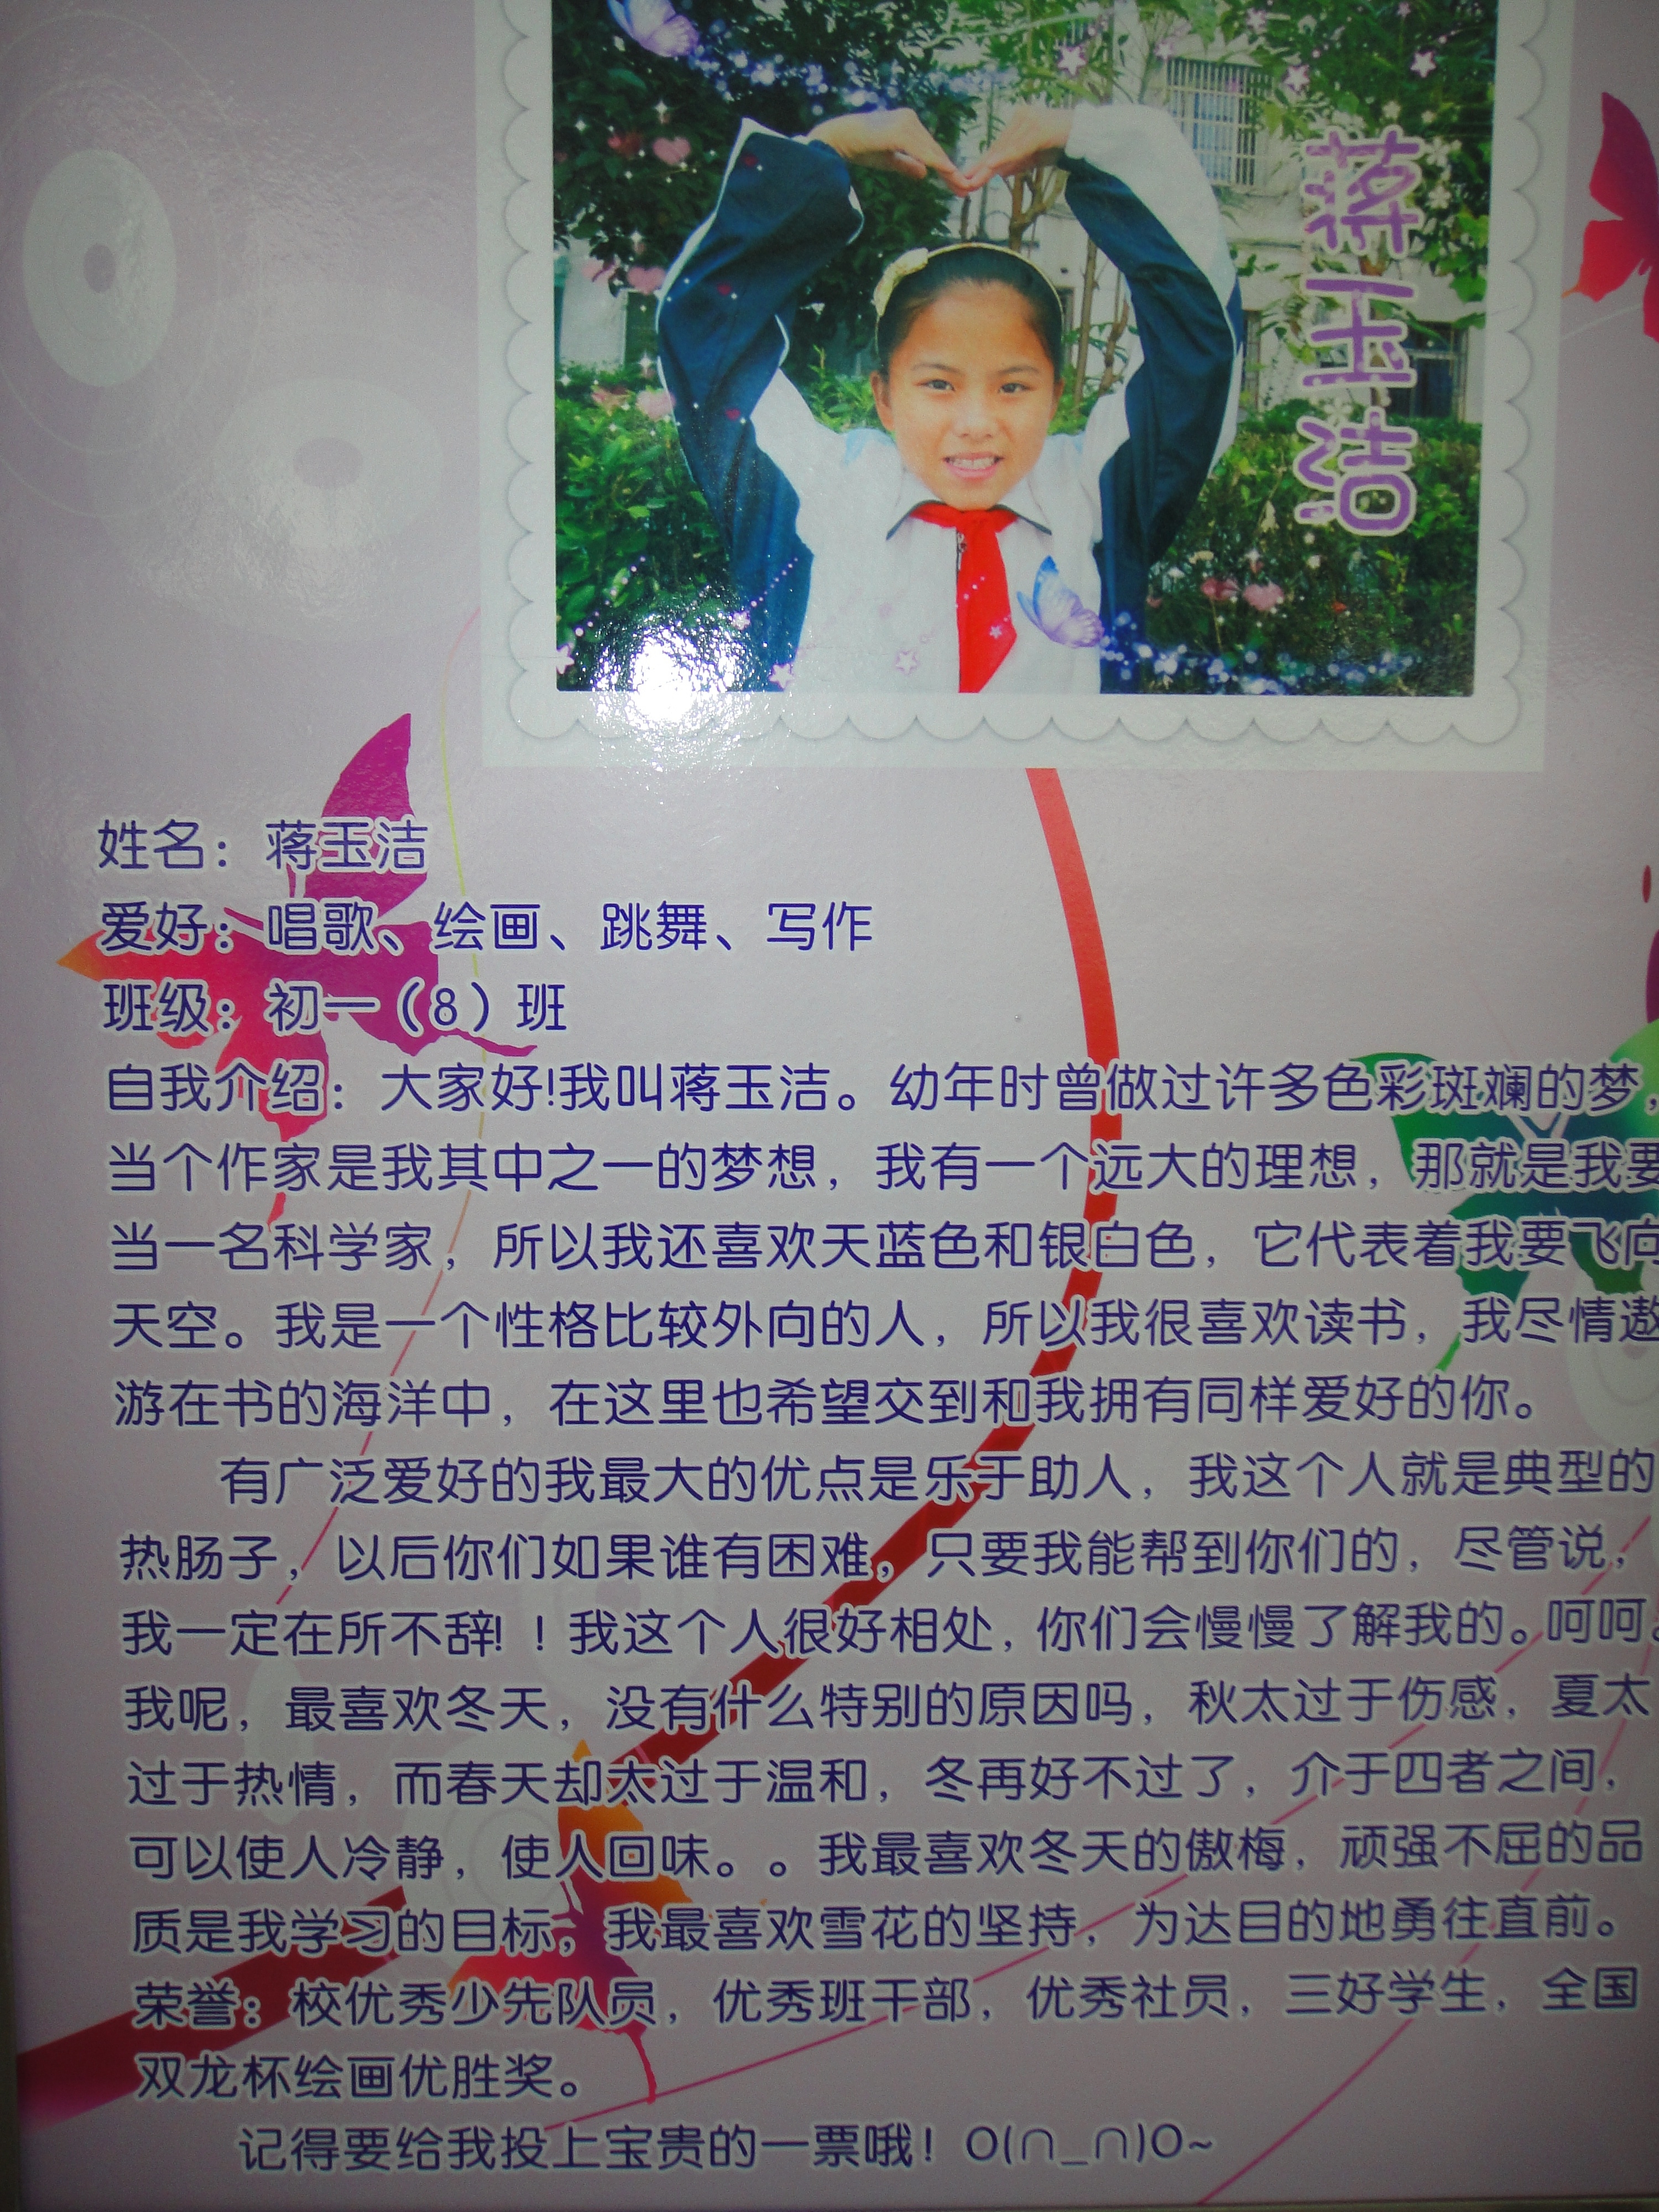 蒋玉洁
姓名：蒋玉洁
爱好：唱歌、绘画、跳舞、写作
班级：初一（8）班
自我介绍：大家好!我叫蒋玉洁。幼年时曾做过许多色彩斑斓的梦，
当个作家是我其中之一的梦想，我有一个远大的理想，那就是我要
当一名科学家，所以我还喜欢天蓝色和银白色，它代表着我要飞向
天空。我是一个性格比较外向的人，所以我很喜欢读书，我尽情遨
游在书的海洋中，在这里也希望交到和我拥有同样爱好的你。
有广泛爱好的我最大的优点是乐于助人，我这个人就是典型的
热肠子，以后你们如果谁有困难，只要我能帮到你们的，尽管说，
我一定在所不辞!！我这个人很好相处，你们会慢慢了解我的。呵呵。
我呢，最喜欢冬天，没有什么特别的原因吗，秋太过于伤感，夏太
过于热情，而春天却太过于温和，冬再好不过了，介于四者之间，
可以使人冷静，使人回味。。我最喜欢冬天的傲梅，顽强不屈的品
质是我学习的目标，我最喜欢雪花的坚持，为达目的地勇往直前。
荣誉：校优秀少先队员，优秀班干部，优秀社员，三好学生，全国
双龙杯绘画优胜奖。
记得要给我投上宝贵的一票哦！O(∩_∩)O~